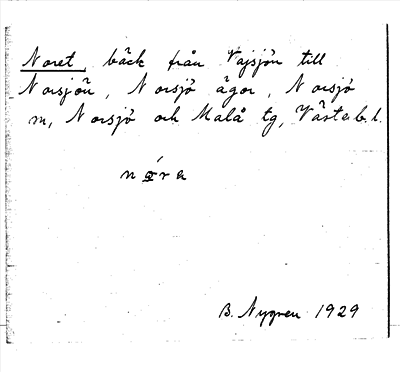 Noret, bäck från Vajsjön till
Norsjön, Norsjö ägor, Norsjö
sn, Norsjö och Malå tg, Västerb. l.
B. Nygren 1929